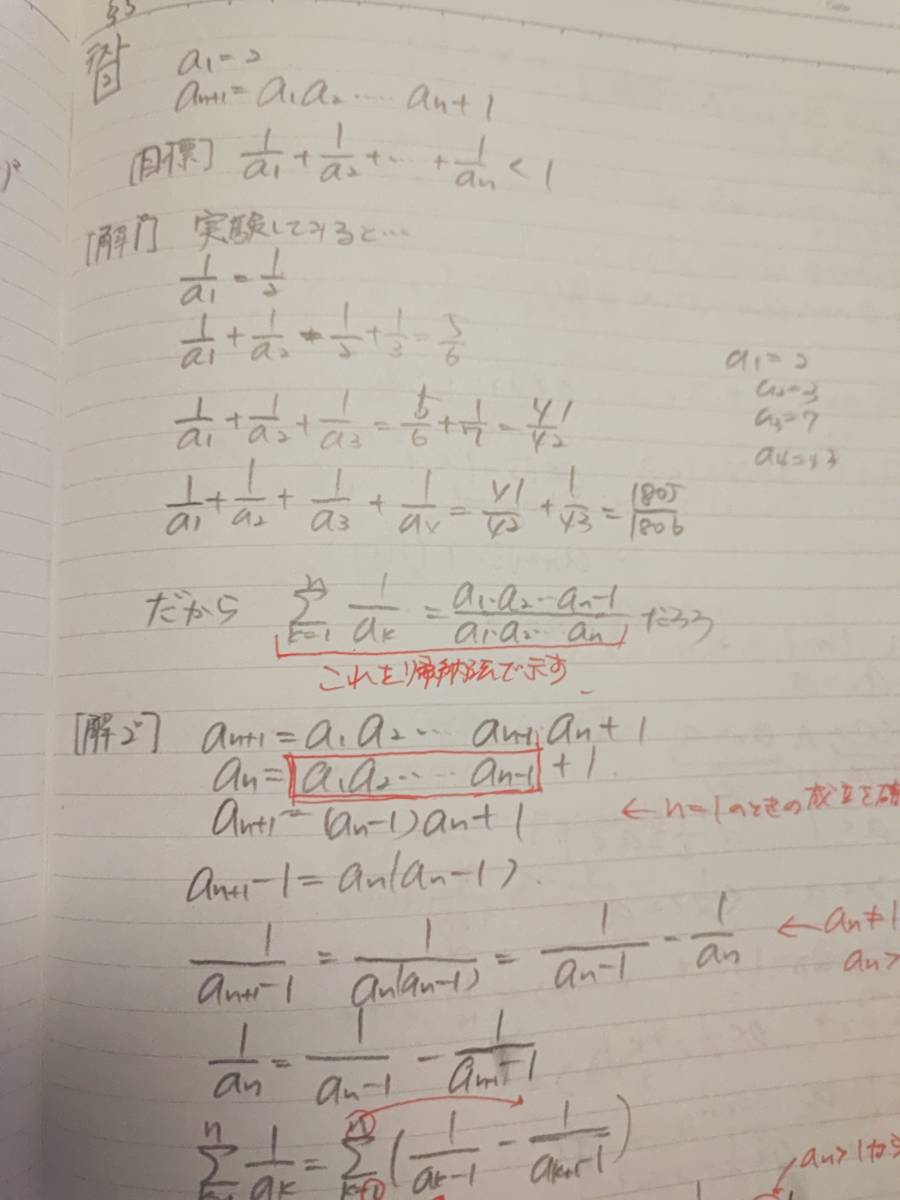 a₁=2
aₙ₊₁=a₁a₂…… aₙ+1
[目標] 1/a₁ + 1/a₂ + … + 1/aₙ < 1
[解1°] 実験してみると…
1/a₁ = 1/2
1/a₁ + 1/a₂ = 1/2 + 1/3 = 5/6
a₁=2
a₂=3
a₃=7
a₄=43
1/a₁ + 1/a₂ + 1/a₃ = 5/6 + 1/7 = 41/42
1/a₁ + 1/a₂ + 1/a₃ + 1/a₄ = 41/42 + 1/43 = 1805/1806
だから Σₖ₌₁ⁿ 1/aₖ = (a₁·a₂…aₙ-1)/(a₁·a₂…aₙ) だろう
これを帰納法で示す
[解2°] aₙ₊₁=a₁a₂…… aₙ₋₁aₙ+1
aₙ=a₁a₂……aₙ₋₁+1
aₙ₊₁=(aₙ-1)aₙ+1 ←n=1のときの成立を確
aₙ₊₁-1=aₙ(aₙ-1).
1/(aₙ₊₁-1) = 1/(aₙ(aₙ-1)) = 1/(aₙ-1) - 1/aₙ ←aₙ≠1
aₙ>
1/aₙ = 1/(aₙ-1) - 1/(aₙ₊₁-1)
Σⁿ 1/aₖ = Σₖ₌₁ⁿ (1/(aₖ-1) - 1/(aₖ₊₁-1))
aₙ>1から